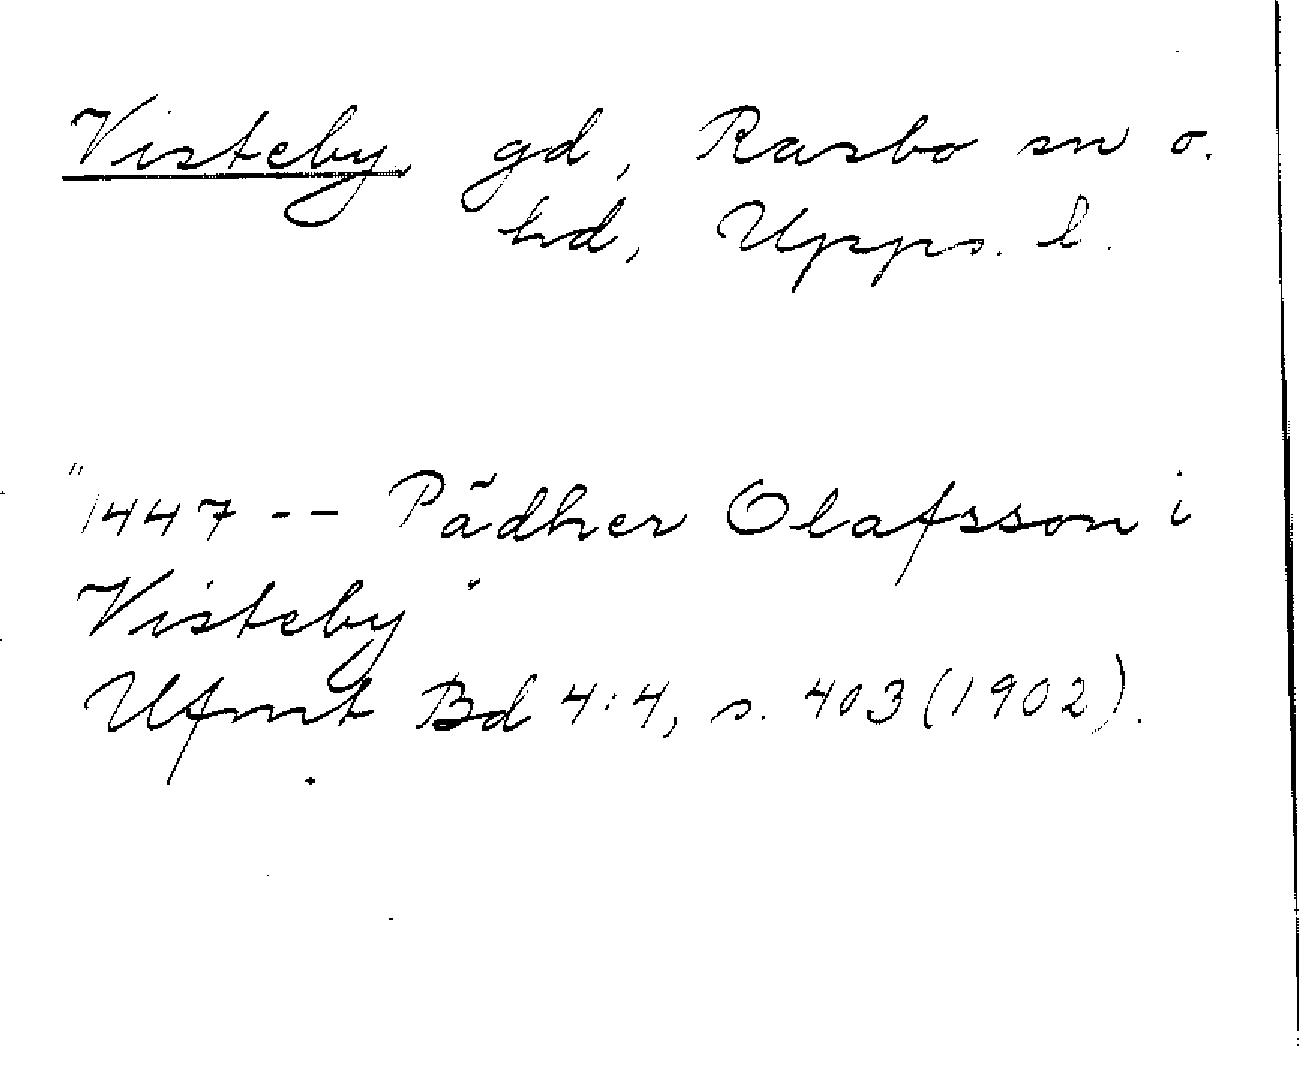 Visteby gd, Rasbo sn o.
hd, Upps. l.
"1447 -- Pädher Olafsson i
Visteby"
Ufmt Bd 4:4, s. 403 (1902).